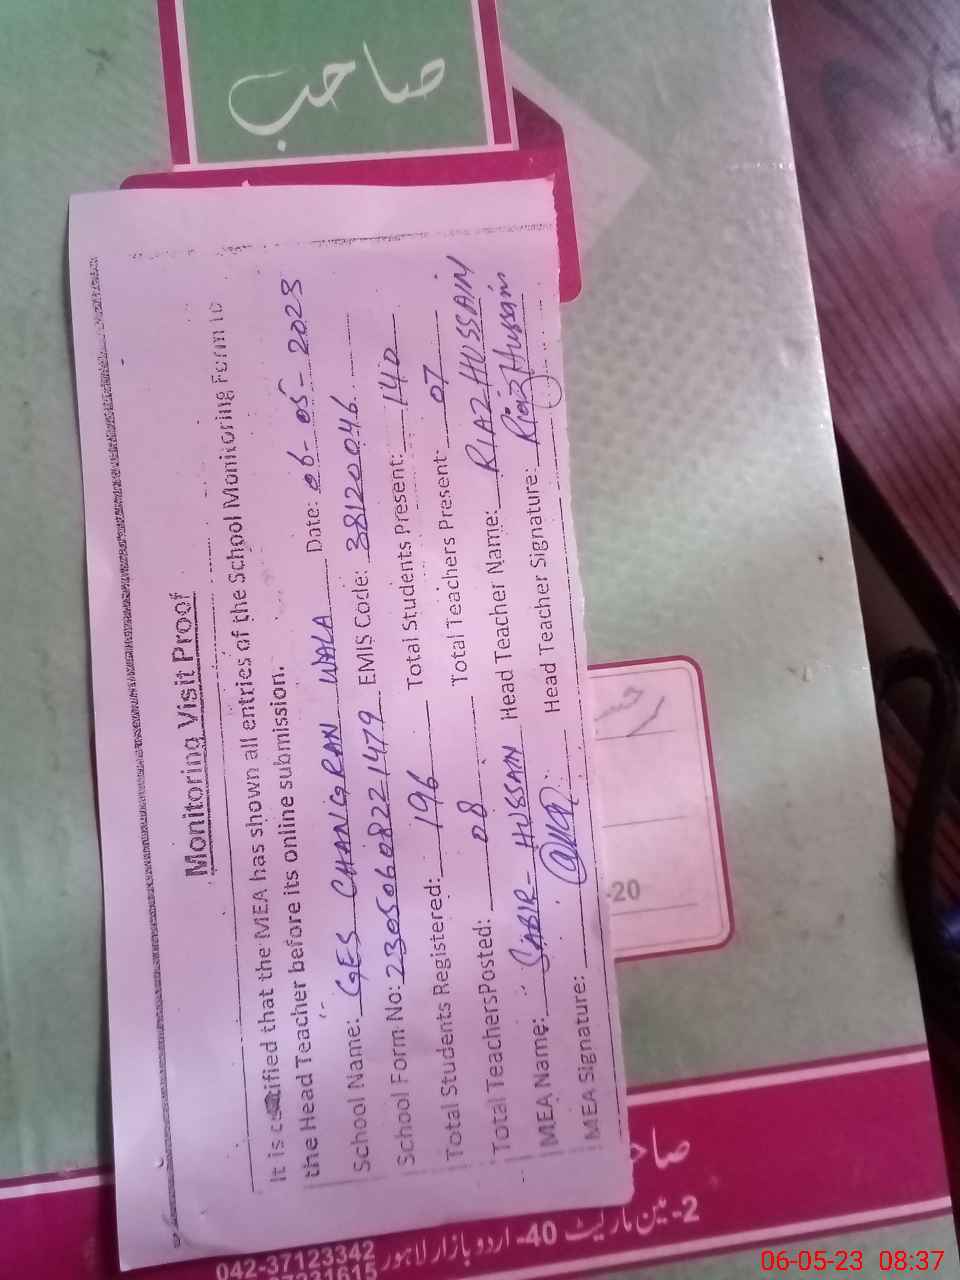 صاحب
Monitoring Visit Proof
It is certified that the MEA has shown all entries of the School Monitoring Form to
the Head Teacher before its online submission.
School Name: GES CHANGRAN WALA Date: 06-05-2023
School Form No: 23050608221479 EMIS Code: 38120046
Total Students Registered: 196 Total Students Present: 140
Total TeachersPosted: 08 Total Teachers Present: 07
MEA Name: SABIR-HUSSAIN Head Teacher Name: RIAZ HUSSAIN
MEA Signature: Head Teacher Signature: Riaz Hussain
-20
2-مین مارکیٹ 40-اردو بازار لاہور
042-37123342
06-05-23 08:37